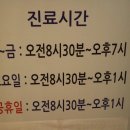 진료시간
~금 : 오전8시30분~오후7시
요일 : 오전8시30분~오후1시
공휴일 : 오전8시30분~오후1시